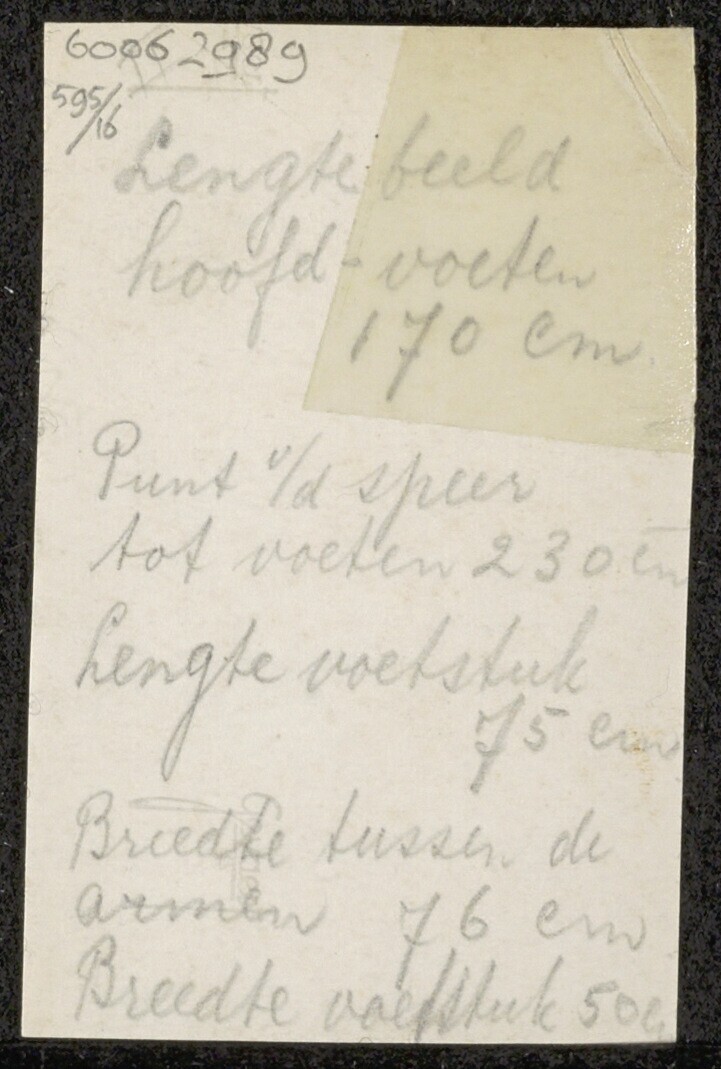 60062989
595/16
Lengte beeld
hoofd-voeten
170 cm.
Punt v/d speer
tot voeten 230 cm
Lengte voetstuk
75 cm
Breedte tussen de
armen 76 cm
Breedte voetstuk 50 c